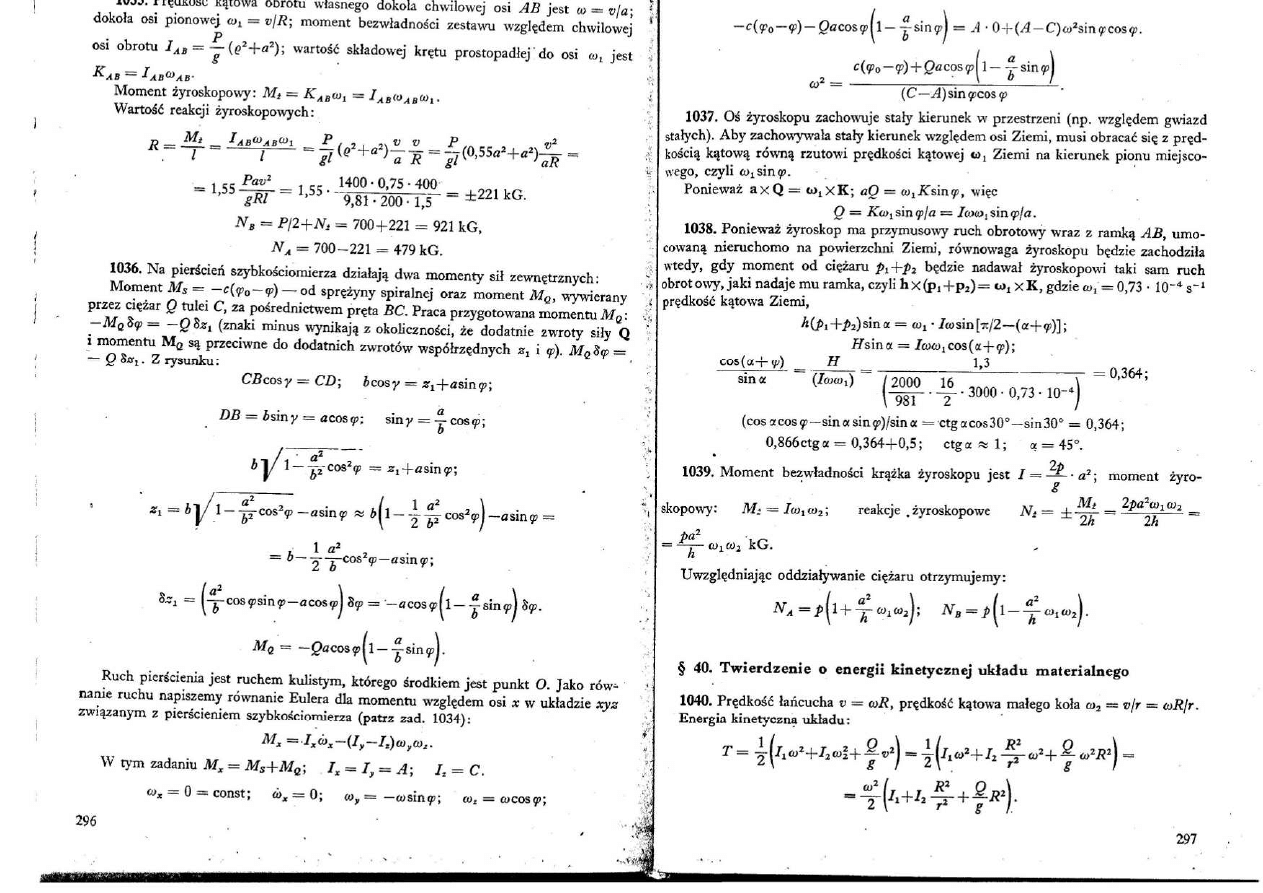 1035. Prędkość kątowa obrotu własnego dokoła chwilowej osi AB jest ω = v/a;
dokoła osi pionowej ω₁ = v/R; moment bezwładności zestawu względem chwilowej
osi obrotu I_AB = P/g (ϱ²+a²); wartość składowej krętu prostopadłej do osi ω₁ jest
K_AB = I_AB ω_AB.
Moment żyroskopowy: M_ż = K_AB ω₁ = I_AB ω_AB ω₁.
Wartość reakcji żyroskopowych:
R = M_ż/l = I_AB ω_AB ω₁/l = P/gl (ϱ²+a²) v/a v/R = P/gl (0,55a²+a²) v²/aR =
= 1,55 Pav²/gRl = 1,55 · 1400 · 0,75 · 400/9,81 · 200 · 1,5 = ±221 kG.
N_B = P/2+N_ż = 700+221 = 921 kG,
N_A = 700−221 = 479 kG.
1036. Na pierścień szybkościomierza działają dwa momenty sił zewnętrznych:
Moment M_S = −c(φ₀−φ) — od sprężyny spiralnej oraz moment M_Q, wywierany
przez ciężar Q tulei C, za pośrednictwem pręta BC. Praca przygotowana momentu M_Q:
−M_Q δφ = −Q δz₁ (znaki minus wynikają z okoliczności, że dodatnie zwroty siły Q
i momentu M_Q są przeciwne do dodatnich zwrotów współrzędnych z₁ i φ). M_Q δφ =
− Q δz₁. Z rysunku:
CBcosγ = CD; bcosγ = z₁+asinφ;
DB = bsinγ = acosφ; sinγ = a/b cosφ;
b√(1− a²/b² cos²φ) = z₁+asinφ;
z₁ = b√(1− a²/b² cos²φ) −asinφ ≈ b(1− 1/2 a²/b² cos²φ)−asinφ =
= b− 1/2 a²/b cos²φ−asinφ;
δz₁ = (a²/b cosφsinφ−acosφ)δφ = −acosφ(1− a/b sinφ)δφ.
M_Q = −Qacosφ(1− a/b sinφ).
Ruch pierścienia jest ruchem kulistym, którego środkiem jest punkt O. Jako rów-
nanie ruchu napiszemy równanie Eulera dla momentu względem osi x w układzie xyz
związanym z pierścieniem szybkościomierza (patrz zad. 1034):
M_x = I_x ω̇_x−(I_y−I_z)ω_y ω_z.
W tym zadaniu M_x = M_S+M_Q; I_x = I_y = A; I_z = C.
ω_x = 0 = const; ω̇_x = 0; ω_y = −ωsinφ; ω_z = ωcosφ;
296
−c(φ₀−φ)−Qacosφ(1− a/b sinφ) = A · 0+(A−C)ω²sinφcosφ.
ω² = c(φ₀−φ)+Qacosφ(1− a/b sinφ)/(C−A)sinφcosφ.
1037. Oś żyroskopu zachowuje stały kierunek w przestrzeni (np. względem gwiazd
stałych). Aby zachowywała stały kierunek względem osi Ziemi, musi obracać się z pręd-
kością kątową równą rzutowi prędkości kątowej ω₁ Ziemi na kierunek pionu miejsco-
wego, czyli ω₁sinφ.
Ponieważ a×Q = ω₁×K; aQ = ω₁Ksinφ, więc
Q = Kω₁sinφ/a = Iωω₁sinφ/a.
1038. Ponieważ żyroskop ma przymusowy ruch obrotowy wraz z ramką AB, umo-
cowaną nieruchomo na powierzchni Ziemi, równowaga żyroskopu będzie zachodziła
wtedy, gdy moment od ciężaru p₁+p₂ będzie nadawał żyroskopowi taki sam ruch
obrotowy, jaki nadaje mu ramka, czyli h×(p₁+p₂)= ω₁×K, gdzie ω₁ = 0,73 · 10⁻⁴ s⁻¹
prędkość kątowa Ziemi,
h(p₁+p₂)sin α = ω₁ · Iωsin[π/2−(α+φ)];
Hsin α = Iωω₁cos(α+φ);
cos(α+φ)/sin α = H/(Iωω₁) = 1,3/(2000/981 · 16/2 · 3000 · 0,73 · 10⁻⁴) = 0,364;
(cos αcosφ−sin αsinφ)/sin α = ctg αcos30°−sin30° = 0,364;
0,866ctg α = 0,364+0,5; ctg α ≈ 1; α = 45°.
1039. Moment bezwładności krążka żyroskopu jest I = 2p/g · a²; moment żyro-
skopowy: M_ż = Iω₁ω₂; reakcje żyroskopowe N_ż = ± M_ż/2h = 2pa²ω₁ω₂/2h =
= pa²/h ω₁ω₂ kG.
Uwzględniając oddziaływanie ciężaru otrzymujemy:
N_A = p(1+ a²/h ω₁ω₂); N_B = p(1− a²/h ω₁ω₂).
§ 40. Twierdzenie o energii kinetycznej układu materialnego
1040. Prędkość łańcucha v = ωR, prędkość kątowa małego koła ω₂ = v/r = ωR/r.
Energia kinetyczna układu:
T = 1/2(I₁ω²+I₂ω₂²+ Q/g v²) = 1/2(I₁ω²+I₂ R²/r² ω²+ Q/g ω²R²) =
= ω²/2 (I₁+I₂ R²/r² + Q/g R²).
297